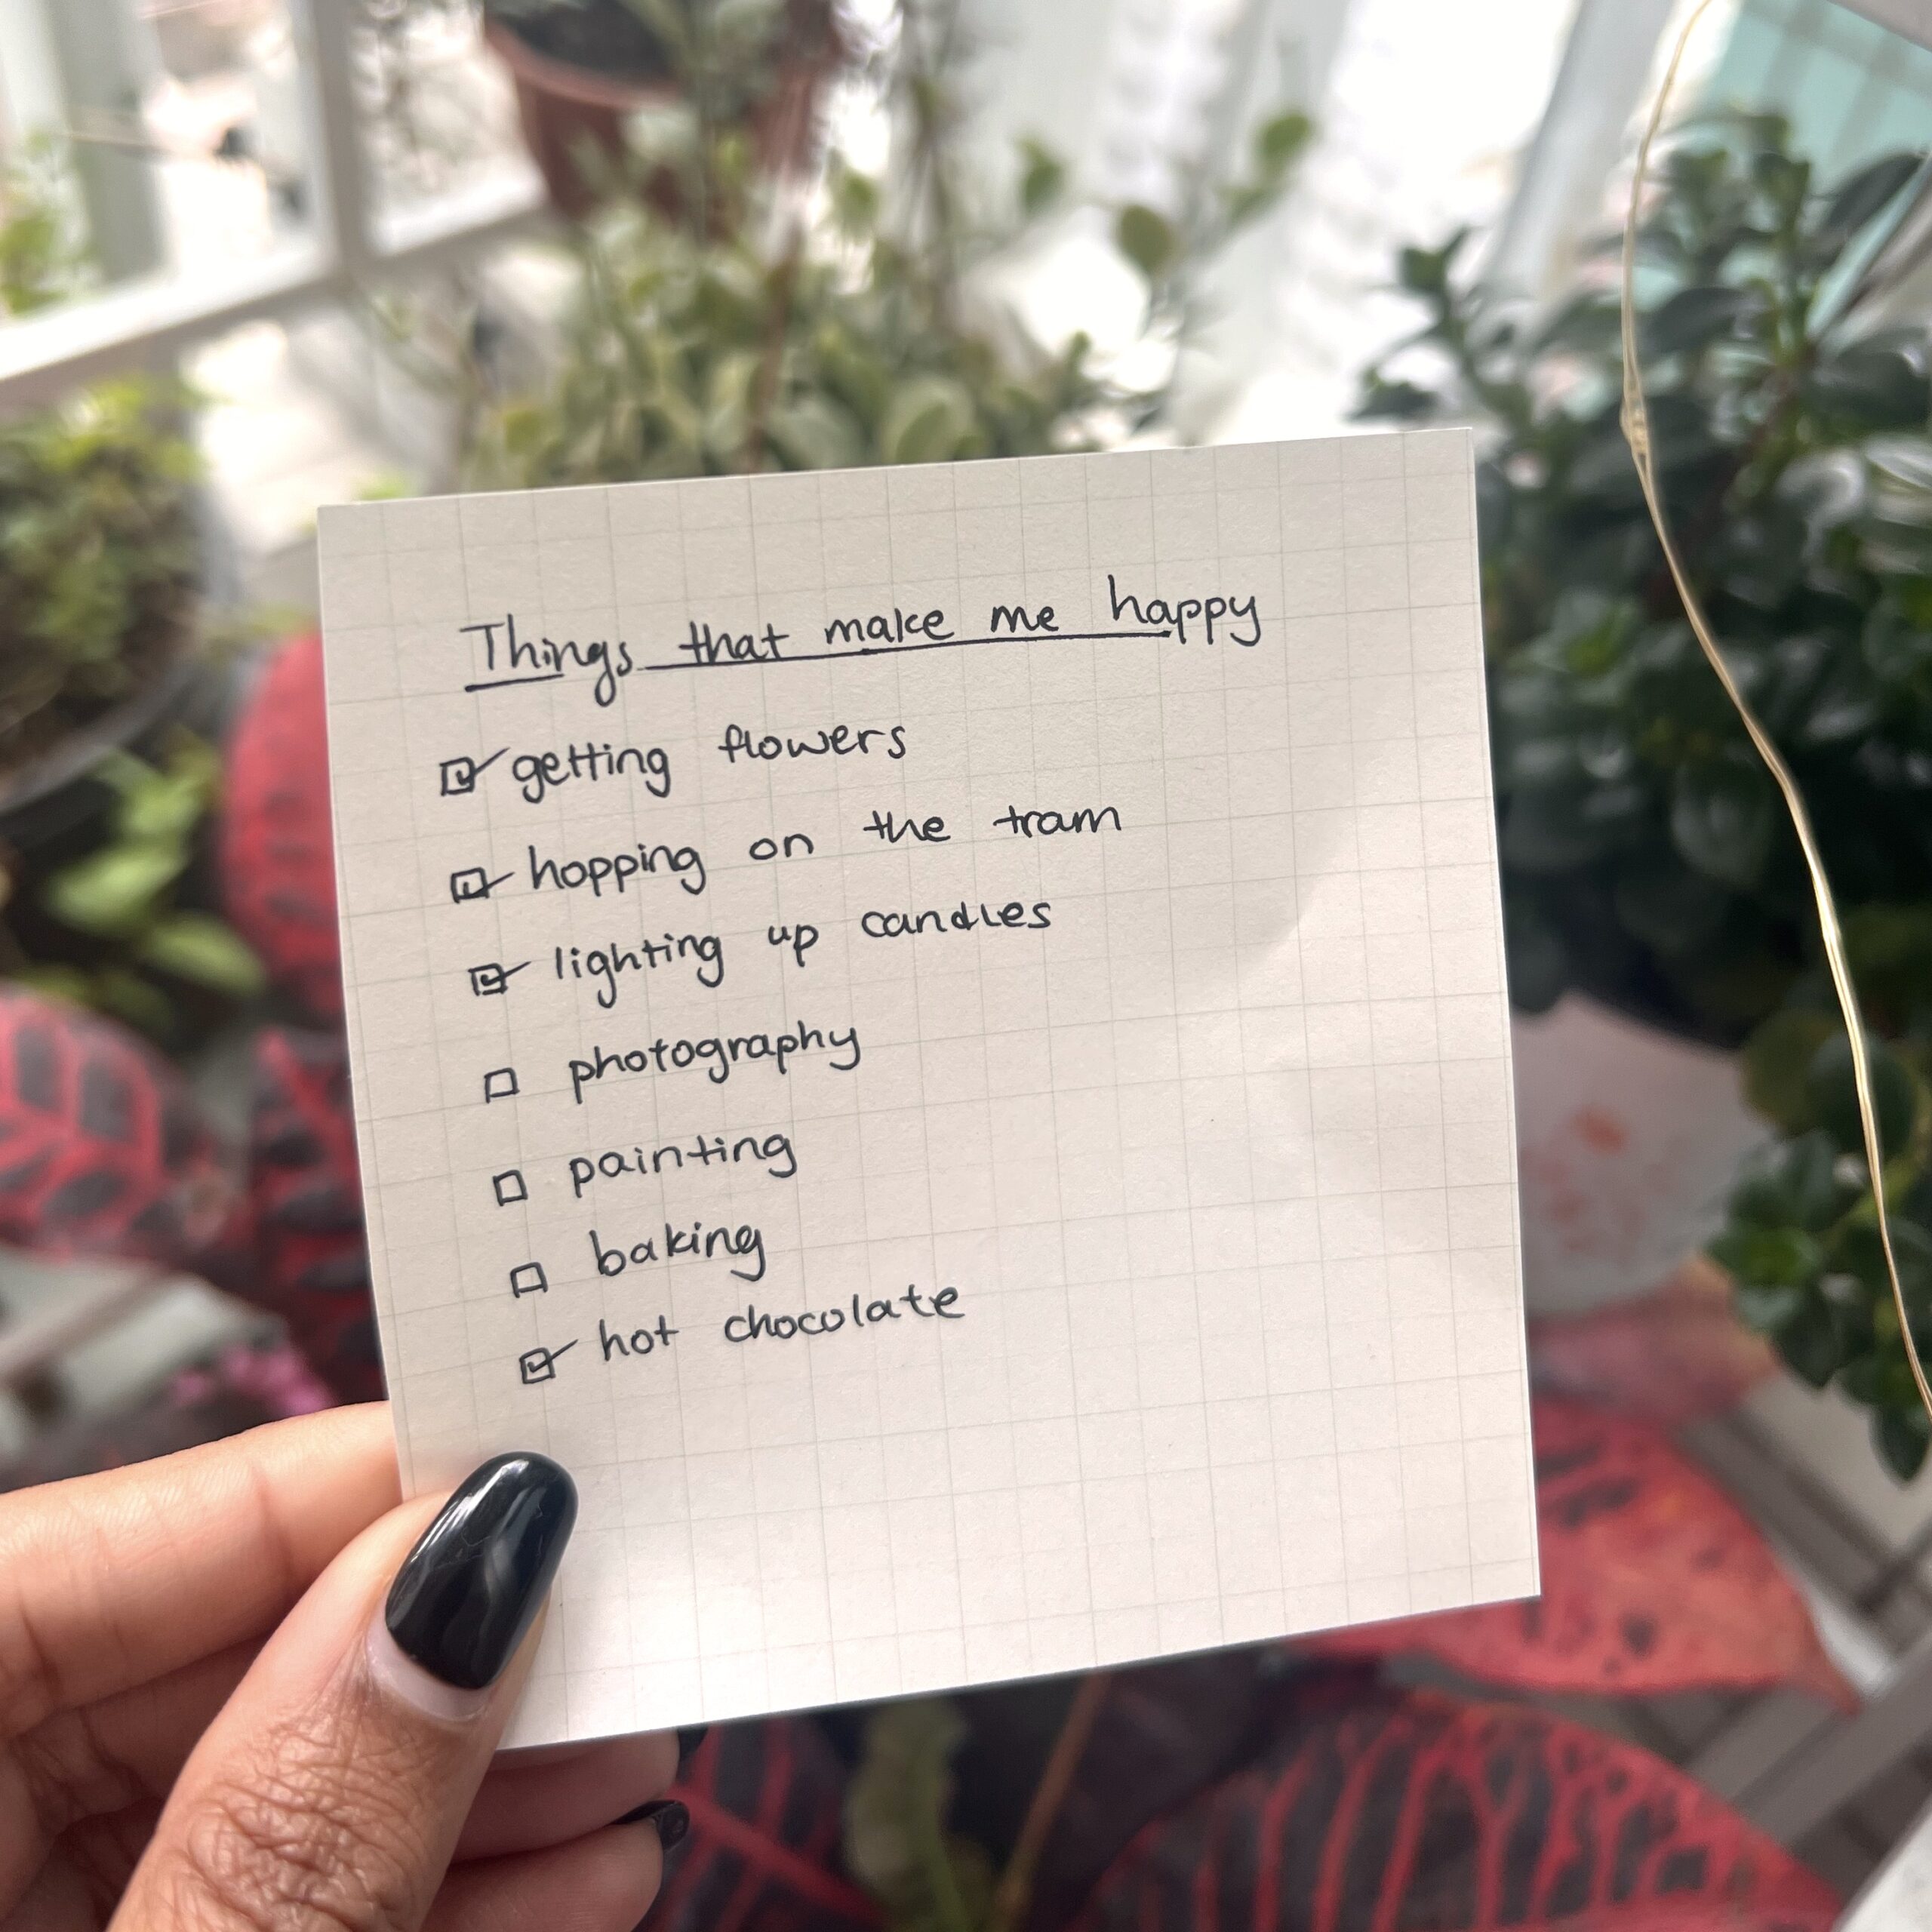 Things that make me happy
☑ getting flowers
☑ hopping on the tram
☑ lighting up candles
☐ photography
☐ painting
☐ baking
☑ hot chocolate